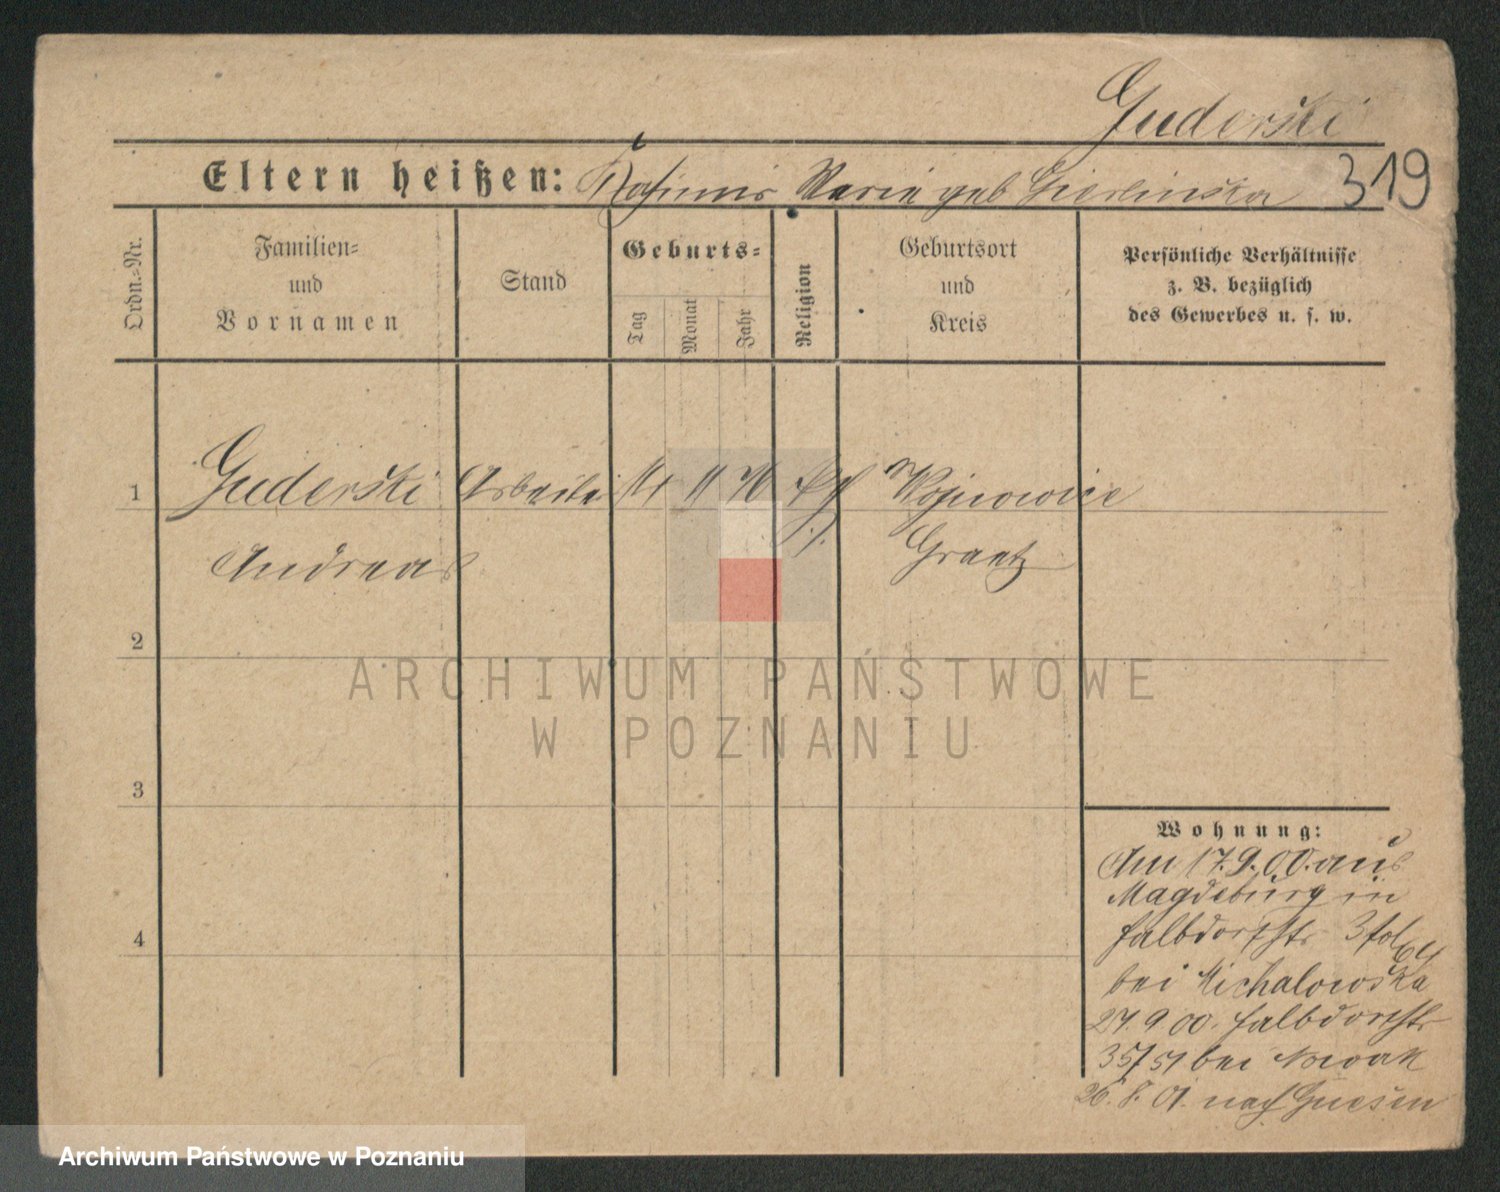 Guderski
Eltern heißen: Kasimir Marie geb Gierlinska 319
Ordn.-Nr.
Familien-
und
Vornamen
Stand
Geburts-
Tag
Monat
Jahr
Religion
Geburtsort
und
Kreis
Persönliche Verhältnisse
z. B. bezüglich
des Gewerbes u. s. w.
1 Guderski Arbeiter 11 76 Wojnowice
Andreas Graetz
2
3
4
ARCHIWUM PAŃSTWOWE
W POZNANIU
Wohnung:
Am 17.9.00. aus
Magdeburg in
Halbdorfstr
bei Michalowska
27.9 00. Halbdorfstr
35/ bei Nowak
26. 8. 01. nach Gnesen
Archiwum Państwowe w Poznaniu